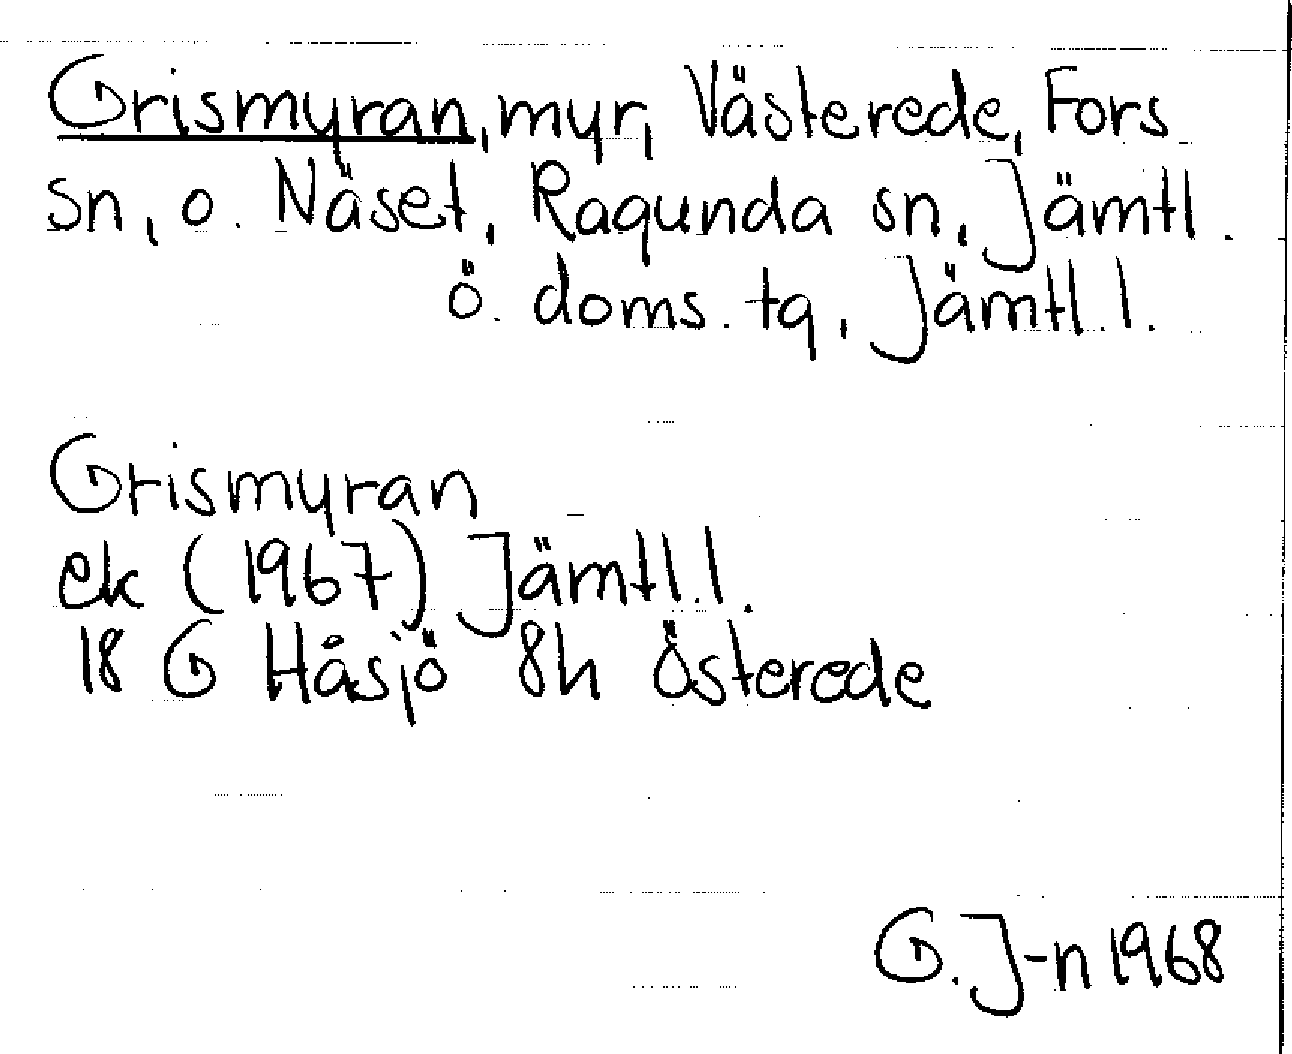 Grismyran, myr, Västerede, Fors
sn, o. Näset, Ragunda sn, Jämtl.
ö. doms. tg, Jämtl. l.
Grismyran
ek (1967) Jämtl. l.
18 G Håsjö 8h Österede
G. J-n 1968